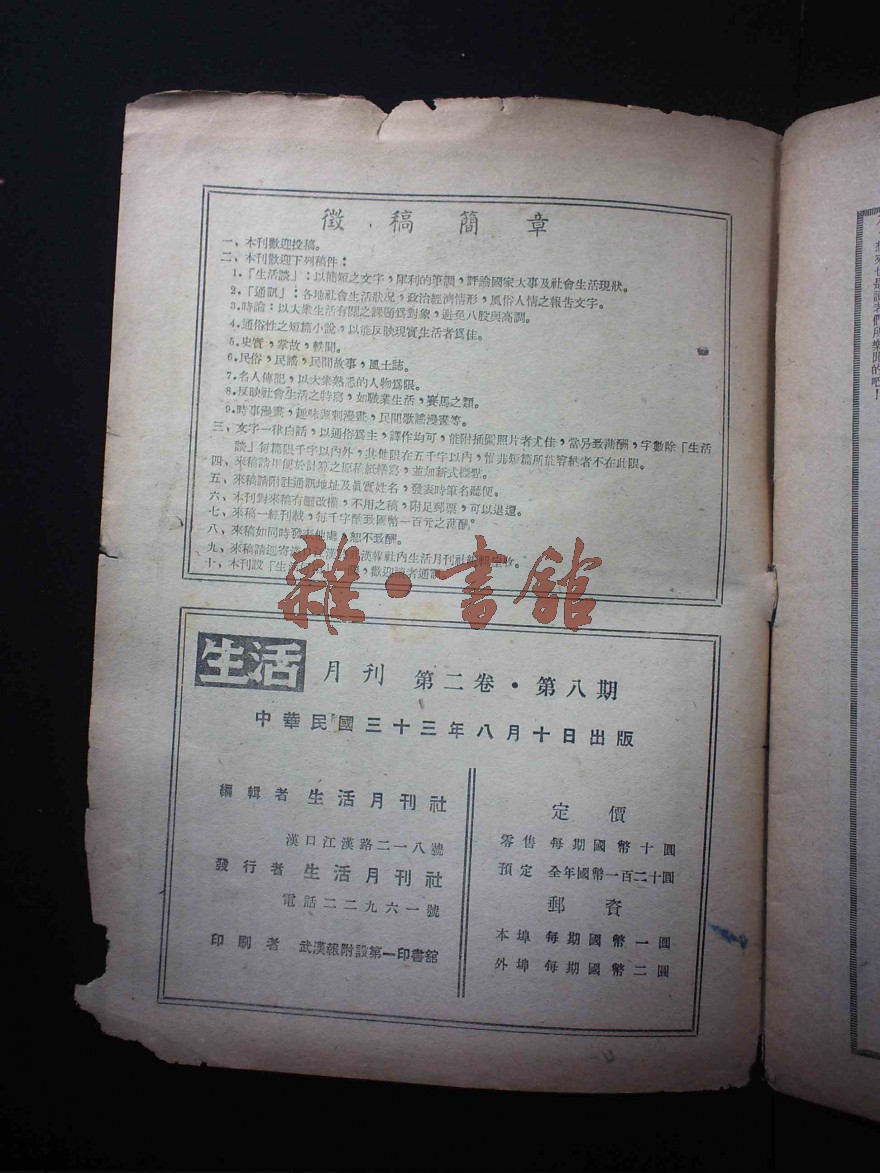 徵稿簡章
一、本刊歡迎投稿。
二、本刊歡迎下列稿件：
1.「生活談」：以簡短之文字，犀利的筆調，評論國家大事及社會生活現狀。
2.「通訊」：各地社會生活狀況，政治經濟情形，風俗人情之報告文字。
3.時論：以大衆生活有關之課題爲對象，避免八股與高調。
4.通俗性之短篇小說，以能反映現實生活者爲佳。
5.史實，掌故，軼聞。
6.民俗，民謠，民間故事，風土誌。
7.名人傳記，以大衆熟悉的人物爲限。
8.反映社會生活之特寫，如職業生活，賽馬之類。
9.時事漫畫，趣味諷刺漫畫，民間歌謠漫畫等。
三、文字一律白話，以通俗爲主，譯作均可，能附插圖照片者尤佳，當另致薄酬，字數除「生活
談」每篇限千字以內外，其他限在五千字以內，惟非短篇所能容納者不在此限。
四、來稿請用便於計算之原稿紙繕寫，並加新式標點。
五、來稿請附註通訊地址及眞實姓名，發表時筆名聽便。
六、本刊對來稿有刪改權，不用之稿，附足郵票，可以退還。
七、來稿一經刊載，每千字酌致國幣一百元之薄酬。
八、來稿如同時發表他處，恕不致酬。
九、來稿請逕寄漢口 漢報社內生活月刊社 收。
十、本刊設「生活 ，歡迎讀者通
雜·書館
生活 月刊 第二卷·第八期
中華民國三十三年八月十日出版
編輯者 生活月刊社
漢口江漢路二一八號
發行者 生活月刊社
電話二二九六一號
印刷者 武漢報附設第一印書館
定價
零售 每期國幣十圓
預定 全年國幣一百二十圓
郵資
本埠 每期國幣一圓
外埠 每期國幣二圓
想來也是讀者們所樂聞的吧！